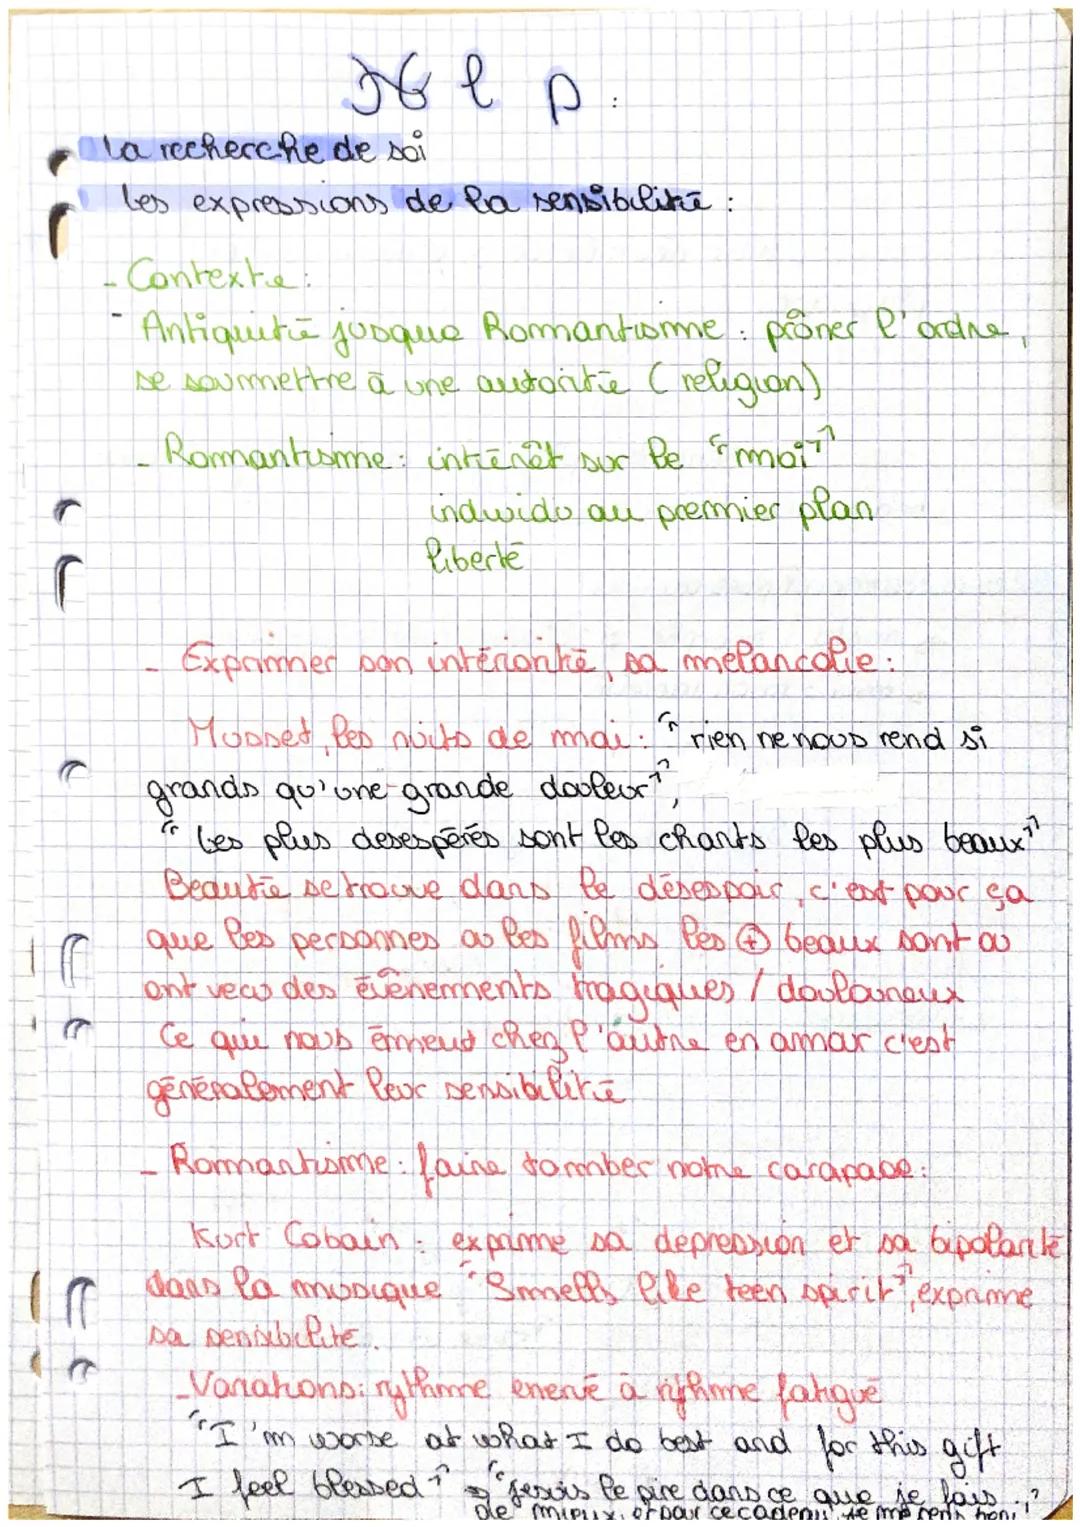 Hlp :
La recherche de soi
Les expressions de la sensibilité :
- Contexte :
- Antiquité jusque Romantisme : prôner l'ordre,
se soumettre à une autorité (religion)
- Romantisme : intérêt sur le "moi"
individu au premier plan
liberté
- Exprimer son intériorité, sa mélancolie :
Musset, les nuits de mai : "rien ne nous rend si
grands qu'une grande douleur",
"Les plus desespérés sont les chants les plus beaux"
Beauté se trouve dans le désespoir, c'est pour ça
que les personnes ou les films les + beaux sont ou
ont vecu des évènements tragiques / douloureux
Ce qui nous émeut chez l'autre en amour c'est
généralement leur sensibilité
- Romantisme : faire tomber notre carapace :
Kurt Cobain : exprime sa dépression et sa bipolarité
dans la musique "Smells like teen spirit", exprime
sa sensibilité.
- Variations : rythme enervé à rythme fatigué
"I'm worse at what I do best and for this gift
I feel blessed" → "je suis le pire dans ce que je fais
de mieux, et pour ce cadeau je me sens béni"